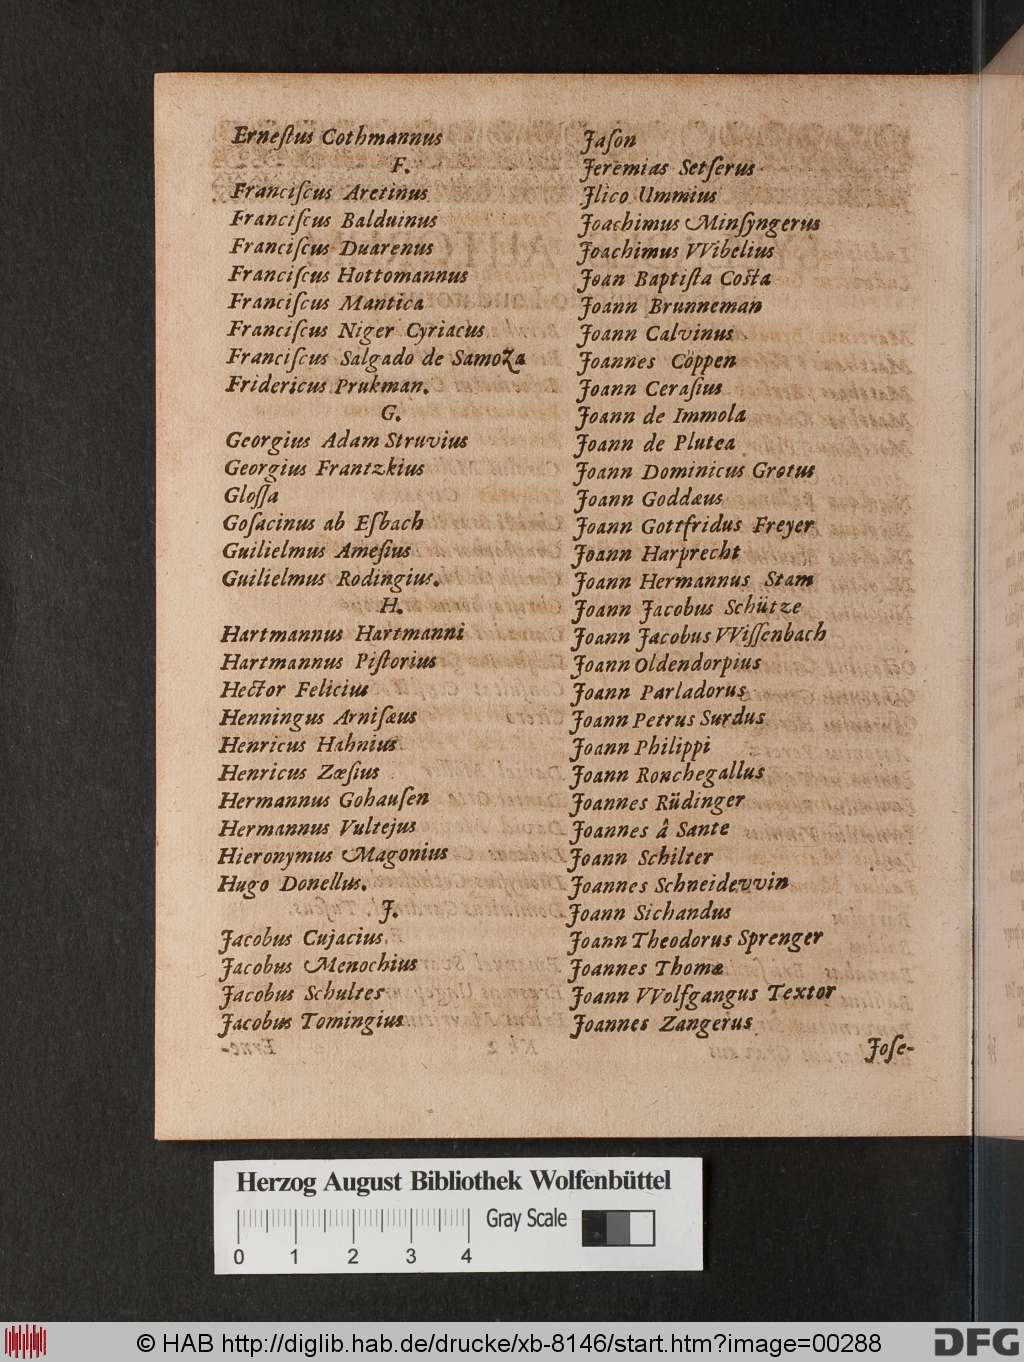 Erneſtus Cothmannus
F.
Franciſcus Aretinus
Franciſcus Balduinus
Franciſcus Duarenus
Franciſcus Hottomannus
Franciſcus Mantica
Franciſcus Niger Cyriacus
Franciſcus Salgado de Samoza
Fridericus Prukman.
G.
Georgius Adam Struvius
Georgius Frantzkius
Gloſſa
Goſacinus ab Eſbach
Guilielmus Ameſius
Guilielmus Rodingius.
H.
Hartmannus Hartmanni
Hartmannus Piſtorius
Hector Felicius
Henningus Arniſæus
Henricus Hahnius
Henricus Zœſius
Hermannus Gohauſen
Hermannus Vultejus
Hieronymus Magonius
Hugo Donellus.
J.
Jacobus Cujacius
Jacobus Menochius
Jacobus Schultes
Jacobus Tomingius
Jaſon
Jeremias Setſerus
Jlico Ummius
Joachimus Minſyngerus
Joachimus VVibelius
Joan Baptiſta Coſta
Joann Brunneman
Joann Calvinus
Joannes Cöppen
Joann Ceraſius
Joann de Immola
Joann de Plutea
Joann Dominicus Grotus
Joann Goddæus
Joann Gottfridus Freyer
Joann Harprecht
Joann Hermannus Stam
Joann Jacobus Schütze
Joann Jacobus VViſſenbach
Joann Oldendorpius
Joann Parladorus
Joann Petrus Surdus
Joann Philippi
Joann Ronchegallus
Joannes Rüdinger
Joannes â Sante
Joann Schilter
Joannes Schneidevvin
Joann Sichandus
Joann Theodorus Sprenger
Joannes Thomæ
Joann VVolfgangus Textor
Joannes Zangerus
Joſe-
Herzog August Bibliothek Wolfenbüttel
Gray Scale
0 1 2 3 4
© HAB http://diglib.hab.de/drucke/xb-8146/start.htm?image=00288
DFG